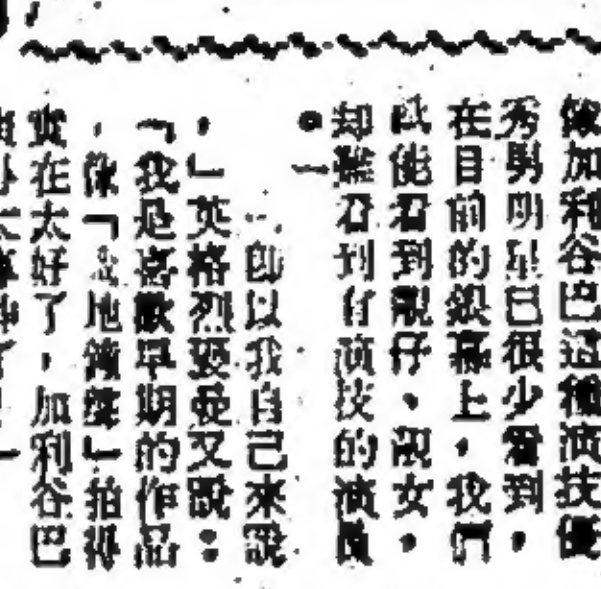 像加利谷巴這種演技優
秀男明星已很少看到，
在目前的銀幕上，我們
祇能看到靚仔、靚女，
却難看到有演技的演員
。」
「即以我自己來說
，」英格烈褒曼又說：
「我是喜歡早期的作品
，像「戰地鐘聲」拍得
實在太好了，加利谷巴